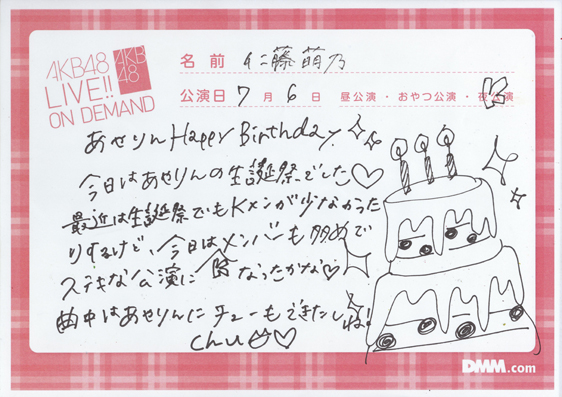 AKB48
LIVE!!
ON DEMAND
AKB
48
名前 仁藤萌乃
公演日 7月6日 昼公演・おやつ公演・夜公演
あやりんHappy Birthday
今日はあやりんの生誕祭でした♡
最近は生誕祭でもKメンが少なかった
りするけど、今日はメンバーも多めで
ステキな公演になったかな♡
曲中はあやりんにチューもできたしね!
chu♡
DMM.com